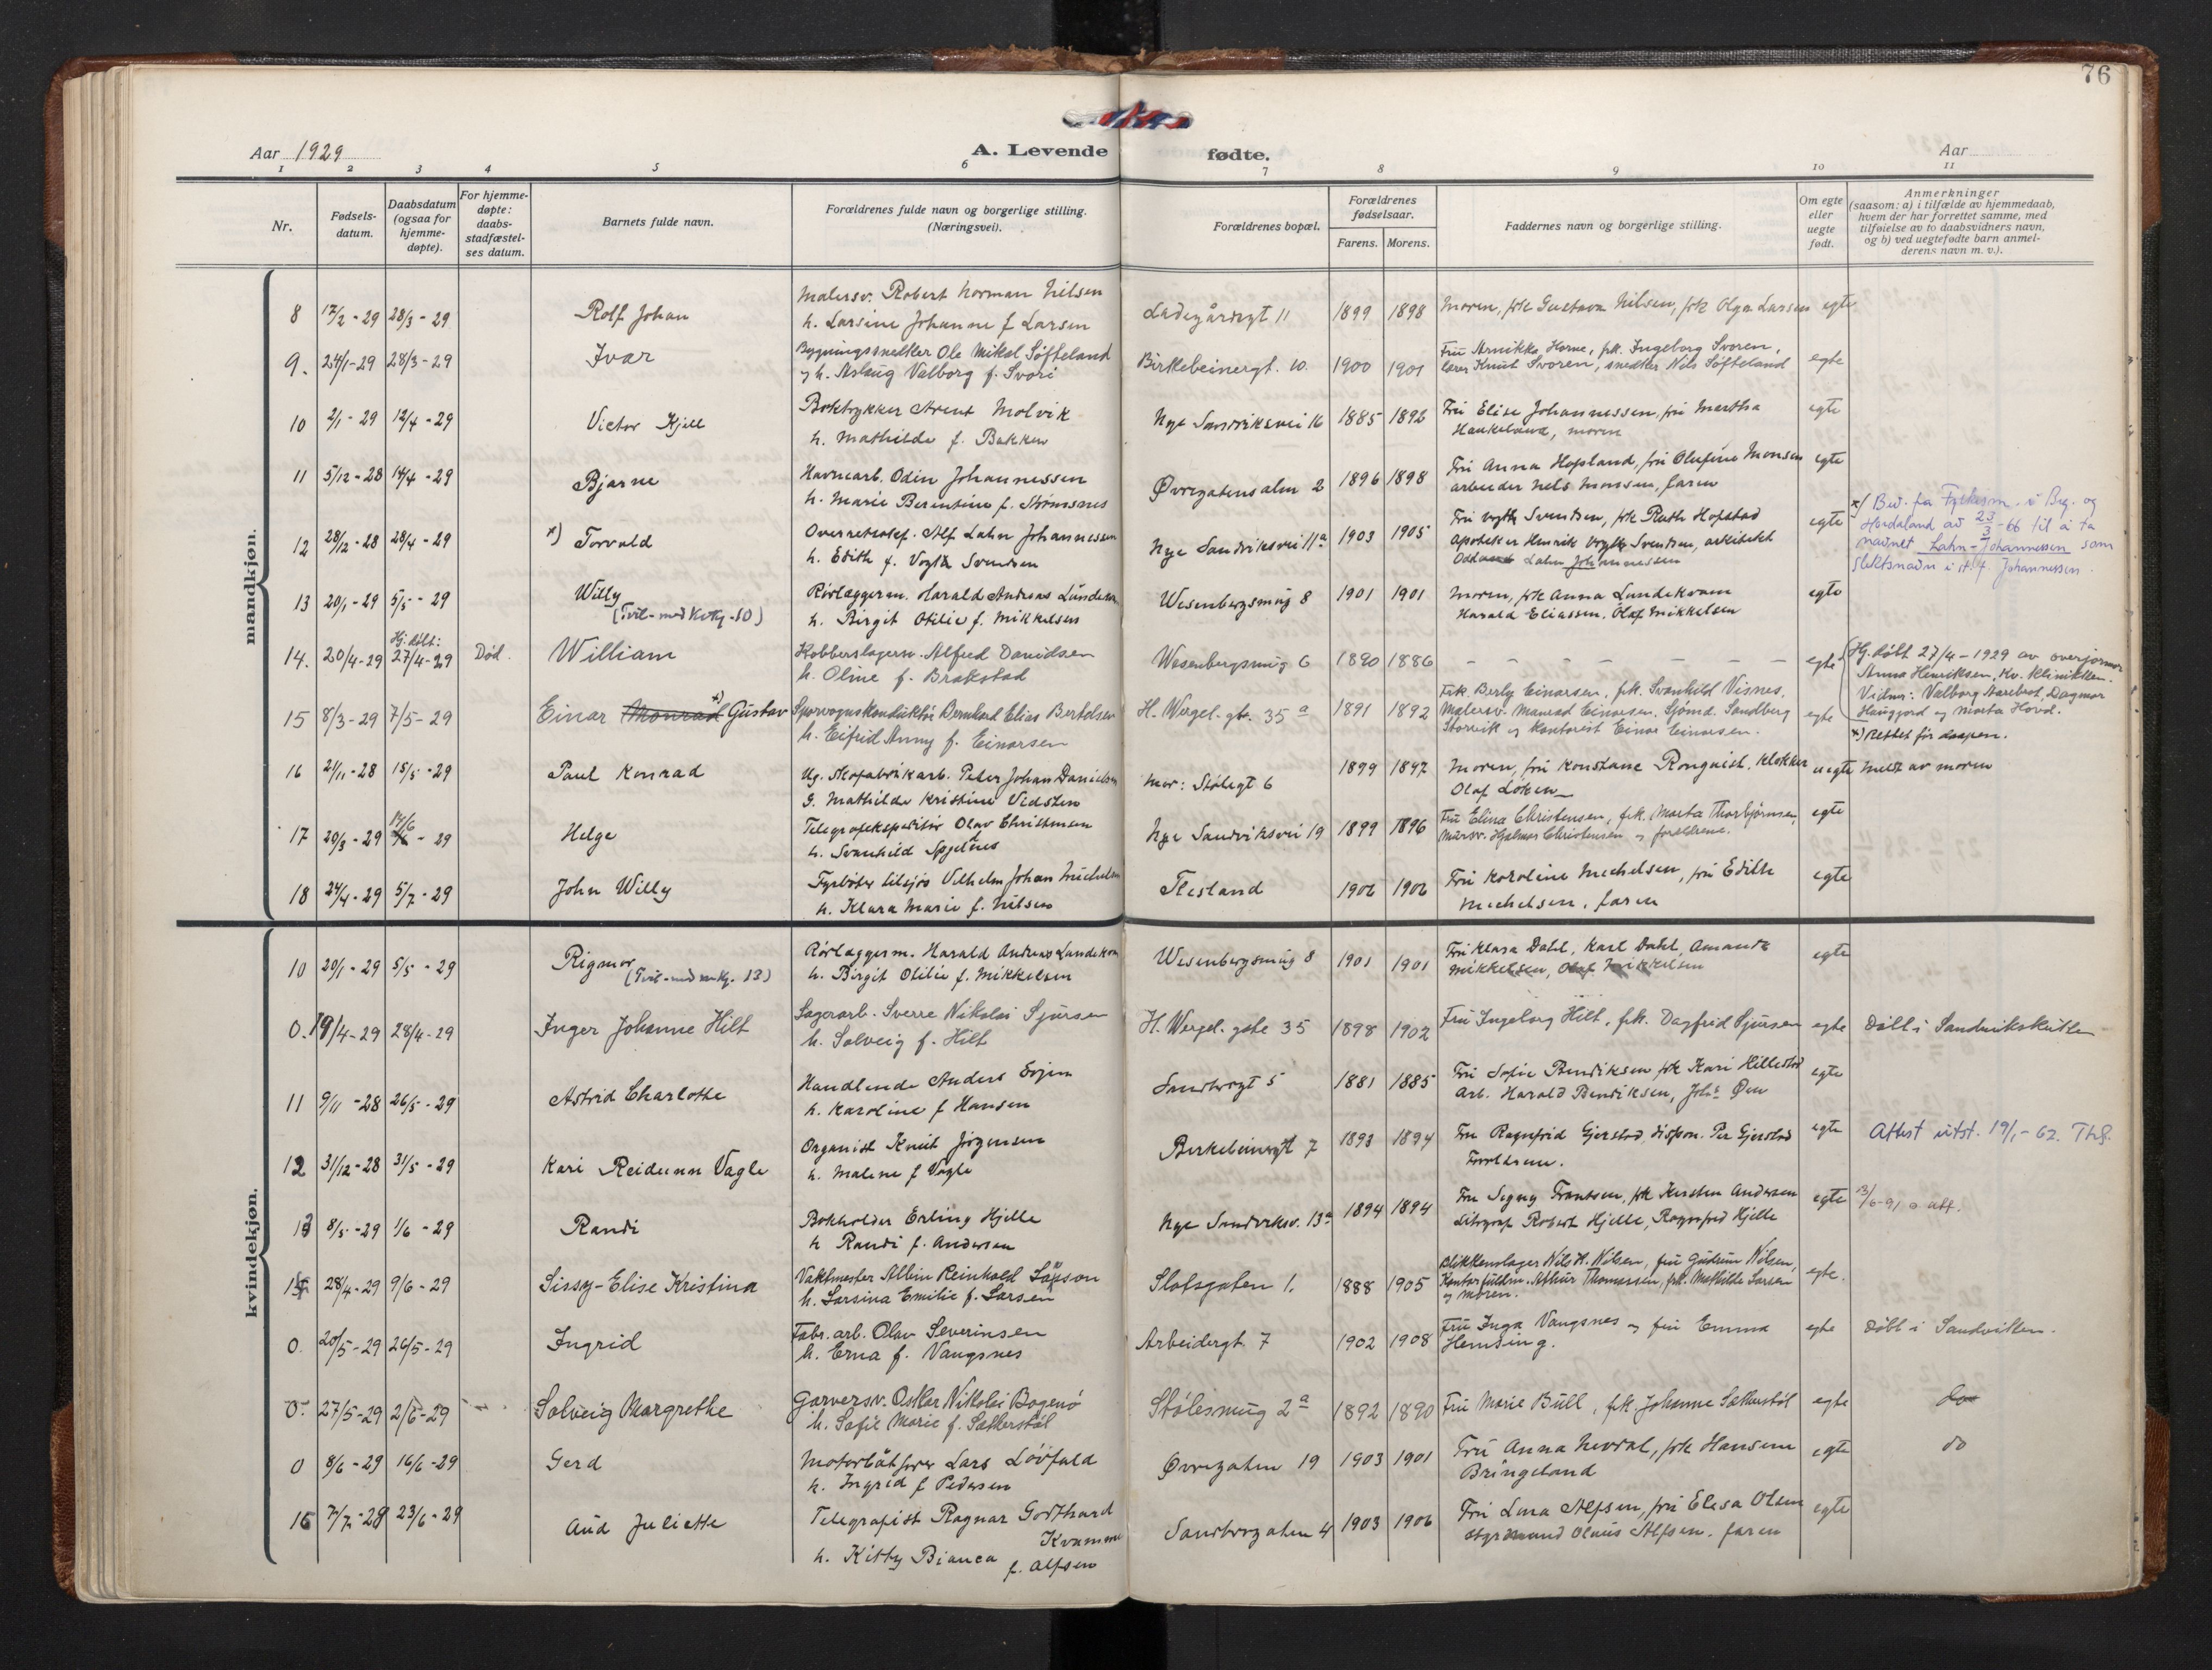 76
Aar 1929
A. Levende fødte.
Aar
1 2 3 4 5 6 7 8 9 10 11
Nr.
Fødsels-
datum.
Daabsdatum
(ogsaa for
hjemme-
døpte).
For hjemme-
døpte:
daabs-
stadfæstel-
ses datum.
Barnets fulde navn.
Forældrenes fulde navn og borgerlige stilling.
(Næringsvei).
Forældrenes bopæl.
Forældrenes
fødselsaar.
Farens. Morens.
Faddernes navn og borgerlige stilling.
Om egte
eller
uegte
født.
Anmerkninger
(saasom: a) i tilfælde av hjemmedaab,
hvem der har forrettet samme, med
tilføielse av to daabsvidners navn,
og b) ved uegtefødte barn anmel-
derens navn m. v.).
mandkjøn.
8 17/2-29 28/3-29 Rolf Johan
Malersv. Robert Norman Nilsen
h. Larsine Johanne f. Larsen
Ladegårdsgt 11 1899 1898
Moren, frk Gustava Nilsen, frk Olga Larsen egte
9. 24/1-29 28/3-29 Ivar
Bygningssnedker Ole Mikal Søfteland
og h. Aslaug Valborg f. Svori
Birkebeinergt. 10. 1900 1901
Fru Arnikka Horne, frk. Ingeborg Svoren,
lærer Knut Svoren, snedker Nils Søfteland egte
10 2/1-29 12/4-29 Victor Kjell
Boktrykker Arent Molvik
h. Mathilde f. Bakken
Nye Sandviksvei 16 1885 1892
Fru Elise Johannessen, fru Martha
Haukeland, moren egte
11 5/12-28 14/4-29 Bjarne
Havnearb. Odin Johannessen
h. Marie Berentine f. Strømsnes
Øvregatensalm 2 1896 1898
Fru Anna Hopland, fru Olufine Monsen
arbeider Nels Monsen, faren egte
12 28/12-28 28/4-29 x) Torvald
Overretssakf. Alf Lahn Johannessen
h. Edith f. Vogth Svendsen
Nye Sandviksvei 11a 1903 1905
Fru Vogth Svendsen, frk Ruth Hopstad
Apotheker Henrik Vogth Svendsen, arkitekt
Lahn Johannessen egte
x) Bev. fra Fylkesm. i Brg. og
Hordaland av 23/3-66 til å ta
navnet Lahn-Johannessen som
slektsnavn i st. f. Johannessen.
13 20/1-29 5/5-29 Willy
(Tvil-med Kvky-10)
Rørlæggerm. Harald Andreas Lundekvam
h. Birgit Otilie f. Mikkelsen
Wesenbergsmug 8 1901 1901
Moren, frk Anna Lundekvam
Harald Eliassen, Olaf Mikkelsen egte
14. 20/4-29 Hj. døbt: 27/4-29 Død. William
Kobberslagersv. Alfred Davidsen
h. Oline f. Brakstad
Wesenbergsmug 6 1890 1886 - - - - - - - egte
Hj. døbt 27/4-1929 av overjormor
Anna Henriksen, Kv. Klinikken.
Vidner: Valborg Aarebrot, Dagmar
Haugjord og Marta Hovd.
15 8/3-29 7/5-29 Einar Monrad x) Gustav
Sporvognskonduktør Bernhard Elias Bertelsen
h. Eifrid Anny f. Einarsen
H. Wergel. gt. 35 a 1891 1892
Frk. Berly Einarsen, frk. Svanhild Visnes,
Malersv. Monrad Einarsen, Sjømd. Sandberg
Storvik og kontorist Einar Einarsen. egte
x) Rettet før daapen.
16 2/11-28 15/5-29 Paul Konrad
Ug. Skofabrikarb. Peder Johan Danielsen
G. Mathilde Kristine Vedsten
Mor: Stølegt 6 1899 1897
Moren, fru Konstanse Ronquist, klokker
Olaf Løken uegte Meldt av moren
17 20/3-29 14/6-29 Helge
Telegrafekspeditør Olav Christensen
h. Svanhild Spjelnes
Nye Sandviksvei 19 1899 1896
Fru Elina Christensen, frk. Marta Thorbjørnsen,
Mursv. Hjalmar Christensen og forældrene. egte
18 24/4-29 5/7-29 John Willy
Fyrbøter tilsjøs Vilhelm Johan Michelsen
h. Klara Marie f. Nilsen
Flesland 1906 1906
Fru Karoline Michelsen, fru Edith
Michelsen, faren egte
kvindekjøn.
10 20/1-29 5/5-29 Rigmor
(Tvil-med mky. 13)
Rørlæggerm. Harald Andreas Lundekvam
h. Birgit Otilie f. Mikkelsen
Wesenbergsmug 8 1901 1901
Fru Klara Dahl, Karl Dahl, Amanda
Mikkelsen, Olaf Mikkelsen egte
0. 19/4-29 28/4-29 Inger Johanne Hilt
Lagerarb. Sverre Nikolai Sjursen
h. Solveig f. Hilt
H. Wergel. gate 35 1898 1902
Fru Ingeborg Hilt, frk. Dagfrid Sjursen egte Døbt i Sandvikskirken
11 9/11-28 26/5-29 Astrid Charlotte
Handlende Anders Evjen
h. Karoline f Hansen
Sandbrogt 5 1881 1885
Fru Sofie Bendiksen frk Kari Hillestad
Arb. Harald Bendiksen, Johs Øen egte
12 31/12-28 31/5-29 Kari Reidunn Vagle
Organist Knut Jørgensen
h. Malene f Vagle
Birkebeinergt 7 1893 1894
Fru Ragnfrid Gjerstad, dispon. Per Gjerstad
Foreldrene. egte Attest utst. 19/1-62. ThS.
13 8/5-29 1/6-29 Randi
Bokholder Erling Hjelle
h Randi f. Andersen
Nye Sandviksv. 13a 1894 1894
Fru Signy Frantsen, frk Kirsten Andersen
Litograf Robert Hjelle, Ragnfred Hjelle egte 13/6-91 att.
14 28/4-29 9/6-29 Sissy-Elise Kristina
Vaktmester Albin Reinhold
h. Larsina Emilie f. Larsen
Slotsgaten 1. 1888 1905
Blikkenslager Nils H. Nilsen, fru Gudrun Nilsen,
Kontorfuldm. Arthur Thomassen, frk. Mathilde Larsen
og moren. egte.
0. 20/5-29 26/5-29 Ingrid
Fabr. arb. Olav Severinsen
h. Erna f. Vangsnes
Arbeidergt. 7 1902 1908
Fru Inga Vangsnes og fru Emma
Hemsing. egte Døbt i Sandviken.
0. 27/5-29 2/6-29 Solveig Margrethe
Garversv. Oskar Nikolai Bogenö
h. Sofie Marie f. Sætherstøl
Stølesmug 2 a 1892 1890
Fru Marie Bull, frk. Johanne Sætherstøl egte do
0 8/6-29 16/6-29 Gerd
Motorbåtfører Lars Løvfald
h. Ingrid f Pedersen
Øvregaten 19 1903 1901
Fru Anna Nevdal, frk Hansine
Bringeland egte do
15 7/7-28 23/6-29 Aud Juliette
Telegrafist Ragnar Godthard
Kvamme
h. Kitty Bianca f. Alfsen
Sandbrogaten 4 1903 1906
Fru Lina Alfsen, fru Elisa Olsen
styrmand Olaus Alfsen, faren egte